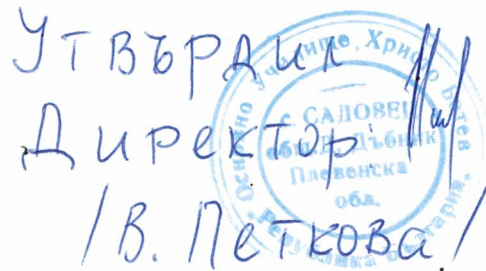 Утвърдил
Директор:
/В. Петкова/
Основно училище "Христо Ботев"
с. САДОВЕЦ
общ. Д. Дъбник
Плевенска
обл.
Република България